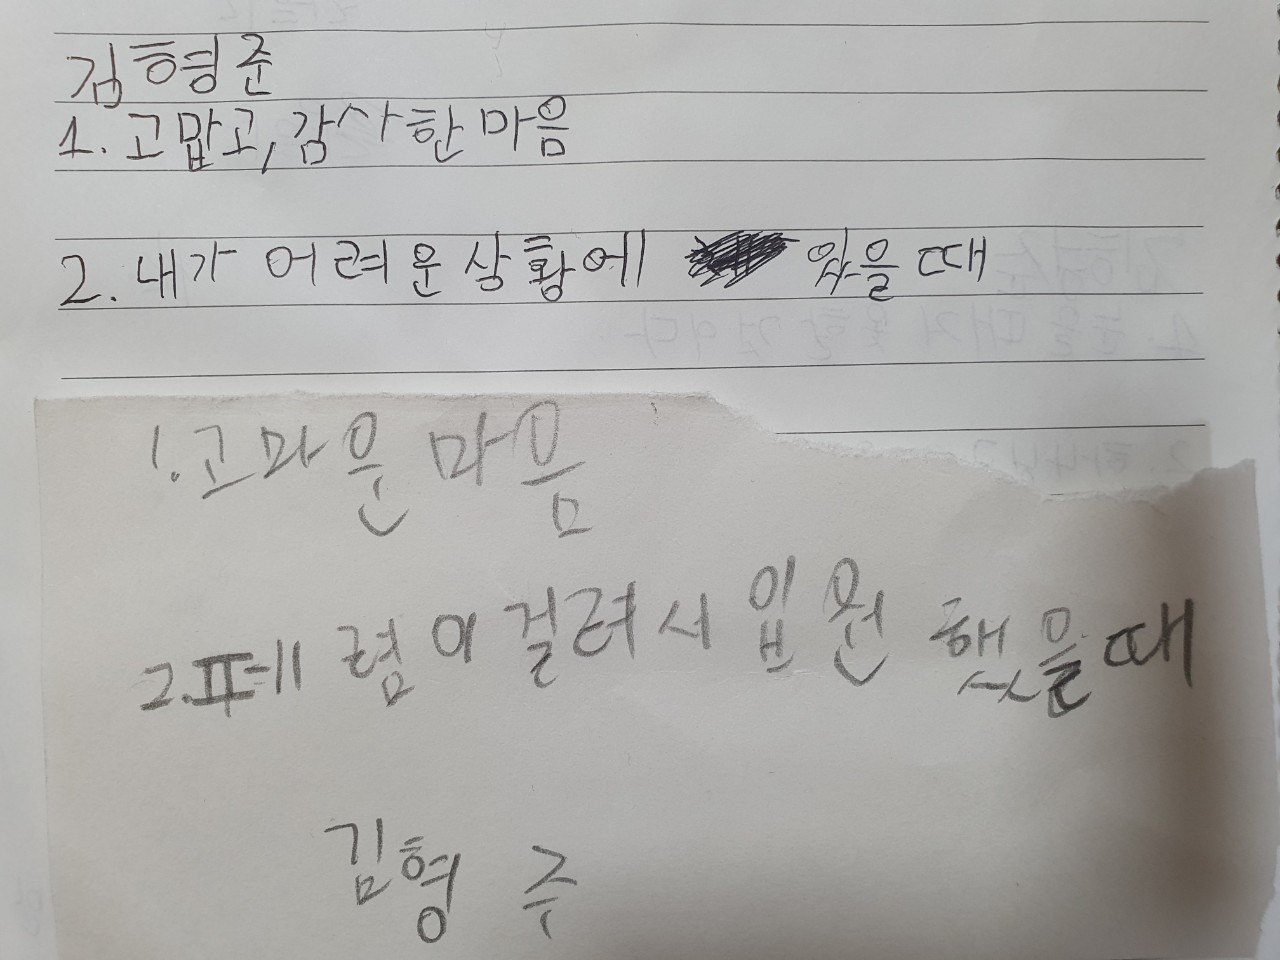 김형준
1. 고맙고, 감사한 마음
2. 내가 어려운 상황에 있을때
1. 고마운 마음
2. 폐렴이 걸려서 입원 했을때
김형주